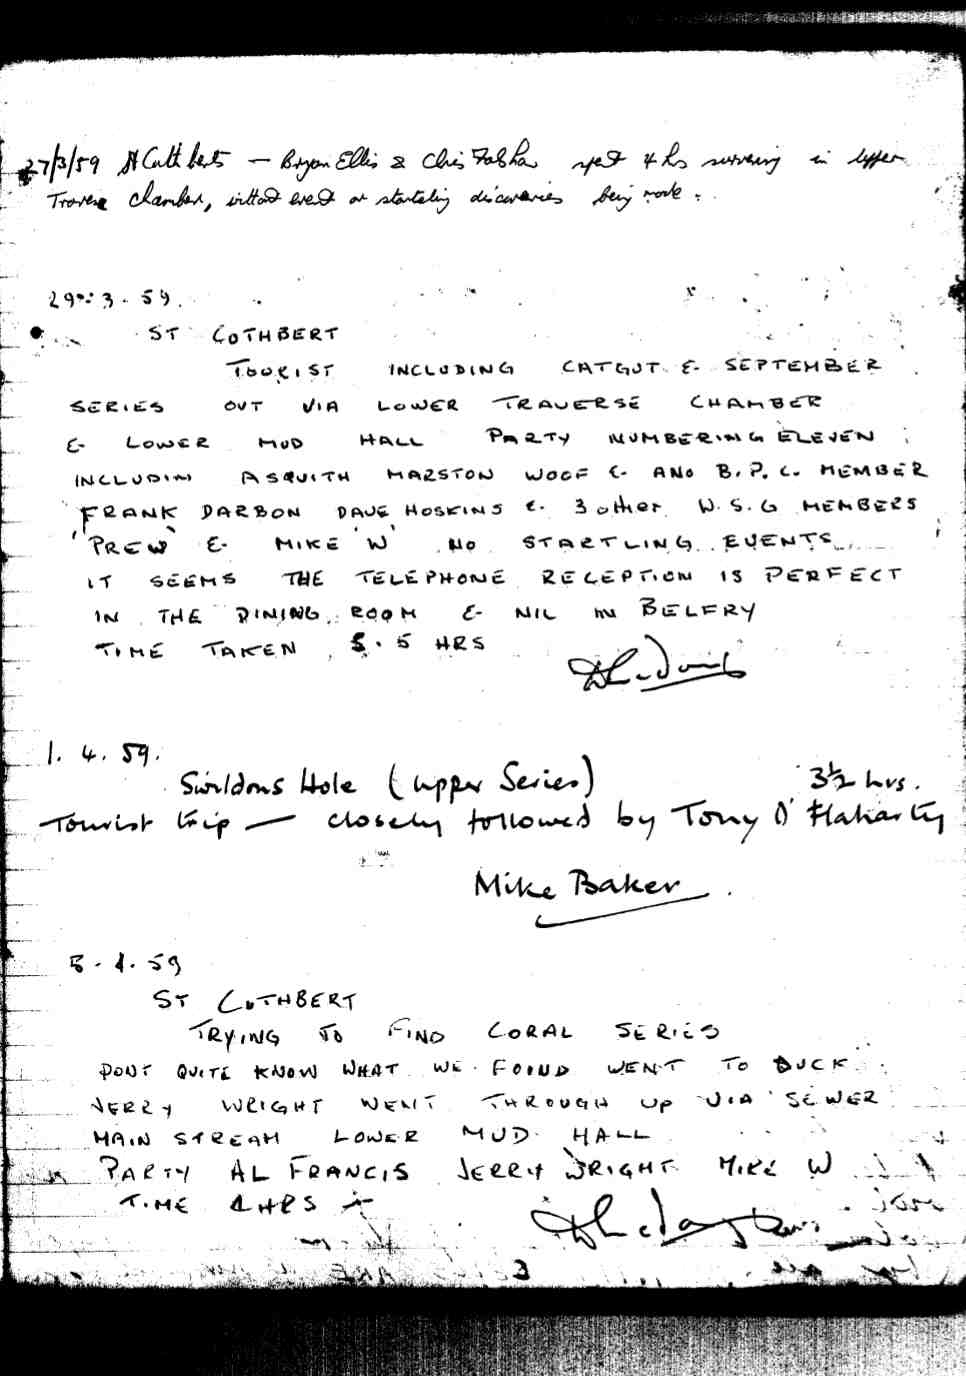 27/3/59 St Cuthberts — Bryan Ellis & Chris Falshaw spent 4 hrs surveying in Upper
Traverse Chamber, without event or startling discoveries being made.
29.3.59.
ST CUTHBERT
TOURIST INCLUDING CATGUT & SEPTEMBER
SERIES OUT VIA LOWER TRAVERSE CHAMBER
& LOWER MUD HALL PARTY NUMBERING ELEVEN
INCLUDIN ASQUITH MARSTON WOOF & ANO B.P.C. MEMBER
FRANK DARBON DAVE HOSKINS & 3 other W.S.G MEMBERS
'PREW' & MIKE 'W' NO STARTLING EVENTS
IT SEEMS THE TELEPHONE RECEPTION IS PERFECT
IN THE DINING ROOM & NIL IN BELFRY
TIME TAKEN 5.5 HRS
1. 4. 59.
Swildons Hole (Upper Series) 3½ hrs.
Tourist trip — closely followed by Tony O'Flaharty
Mike Baker.
5.4.59
ST CUTHBERT
TRYING TO FIND CORAL SERIES
DONT QUITE KNOW WHAT WE FOUND WENT TO DUCK
JERRY WRIGHT WENT THROUGH UP VIA SEWER
MAIN STREAM LOWER MUD HALL
PARTY AL FRANCIS JERRY WRIGHT MIKE W
TIME 4 HRS